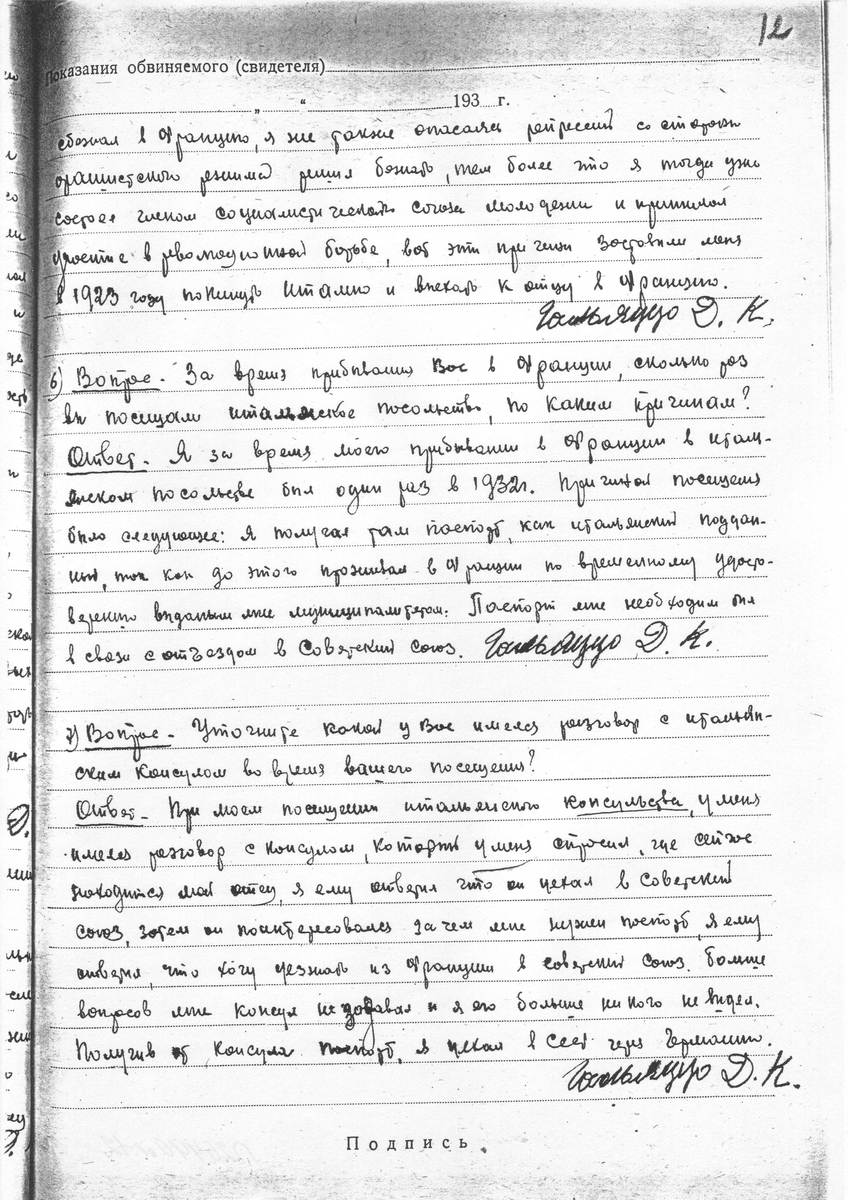 12
Показания обвиняемого (свидетеля)
„ “ 193 г.
сбежал в Францию, я же также опасаясь репрессий со стороны
фашистского режима решил бежать, тем более что я тогда уже
состоял членом социалистического союза молодежи и принимал
участие в революционной борьбе, вот эти причины заставили меня
в 1923 году покинуть Италию и выехать к отцу в Францию.
Гальяццо Д. К.
6) Вопрос. За время прибывания Вас в Франции, сколько раз
вы посещали итальянское посольство, по каким причинам?
Ответ. Я за время моего прибывания в Франции в италь-
янском посольстве был один раз в 1932г. Причиной посещения
было следующее: я получал там паспорт, как итальянский поддан-
ный, так как до этого проживал в Франции по временному удосто-
верению выданым мне муниципалитетом. Паспорт мне необходим был
в связи с отъездом в Советский союз. Гальяццо Д. К.
7) Вопрос. Уточните какой у Вас имелся разговор с итальян-
ским консулом во время вашего посещения?
Ответ. При моем посещении итальянского консульства, у меня
имелся разговор с консулом, который у меня спросил, где сейчас
находится мой отец, я ему ответил что он уехал в Советский
союз, затем он поинтересовался зачем мне нужен паспорт, я ему
ответил, что хочу уезжать из Франции в советский союз. Больше
вопросов мне консул не задавал и я его больше никого не видел.
Получив от консула паспорт, я уехал в СССР через Германию.
Гальяццо Д. К.
Подпись